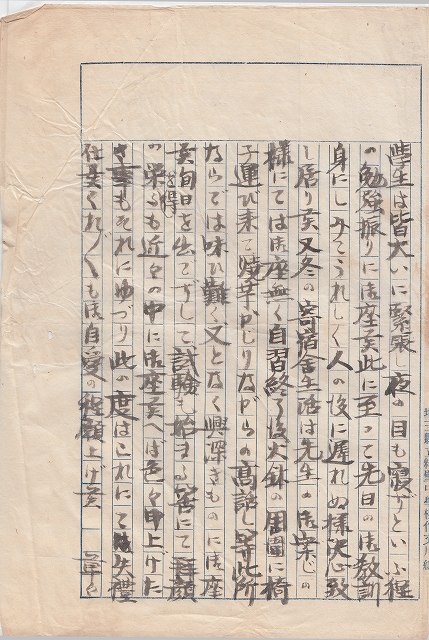 學生は皆大いに緊張し夜の目も寢ずといふ程
の勉強振りに御座候此に至つて先日の御教訓
身にしみてうれしく人の後に遲れぬ樣決心致
し居り候又冬の寄宿舍生活は先生の御案じの
樣にては御座無く自習終了後火鉢の周圍に椅
子運び來て燒芋かじりながらの高話し等此所
ならでは味ひ難く又となく興深きものに御座
候旬日を出でずして試驗も始まる筈にて拜顏
の榮を得るも近々の中に御座候へば色々申上げた
き事もそれにゆづり此の度はこれにて御失禮
仕候くれ〴〵も御自愛の程願上げ候 草々